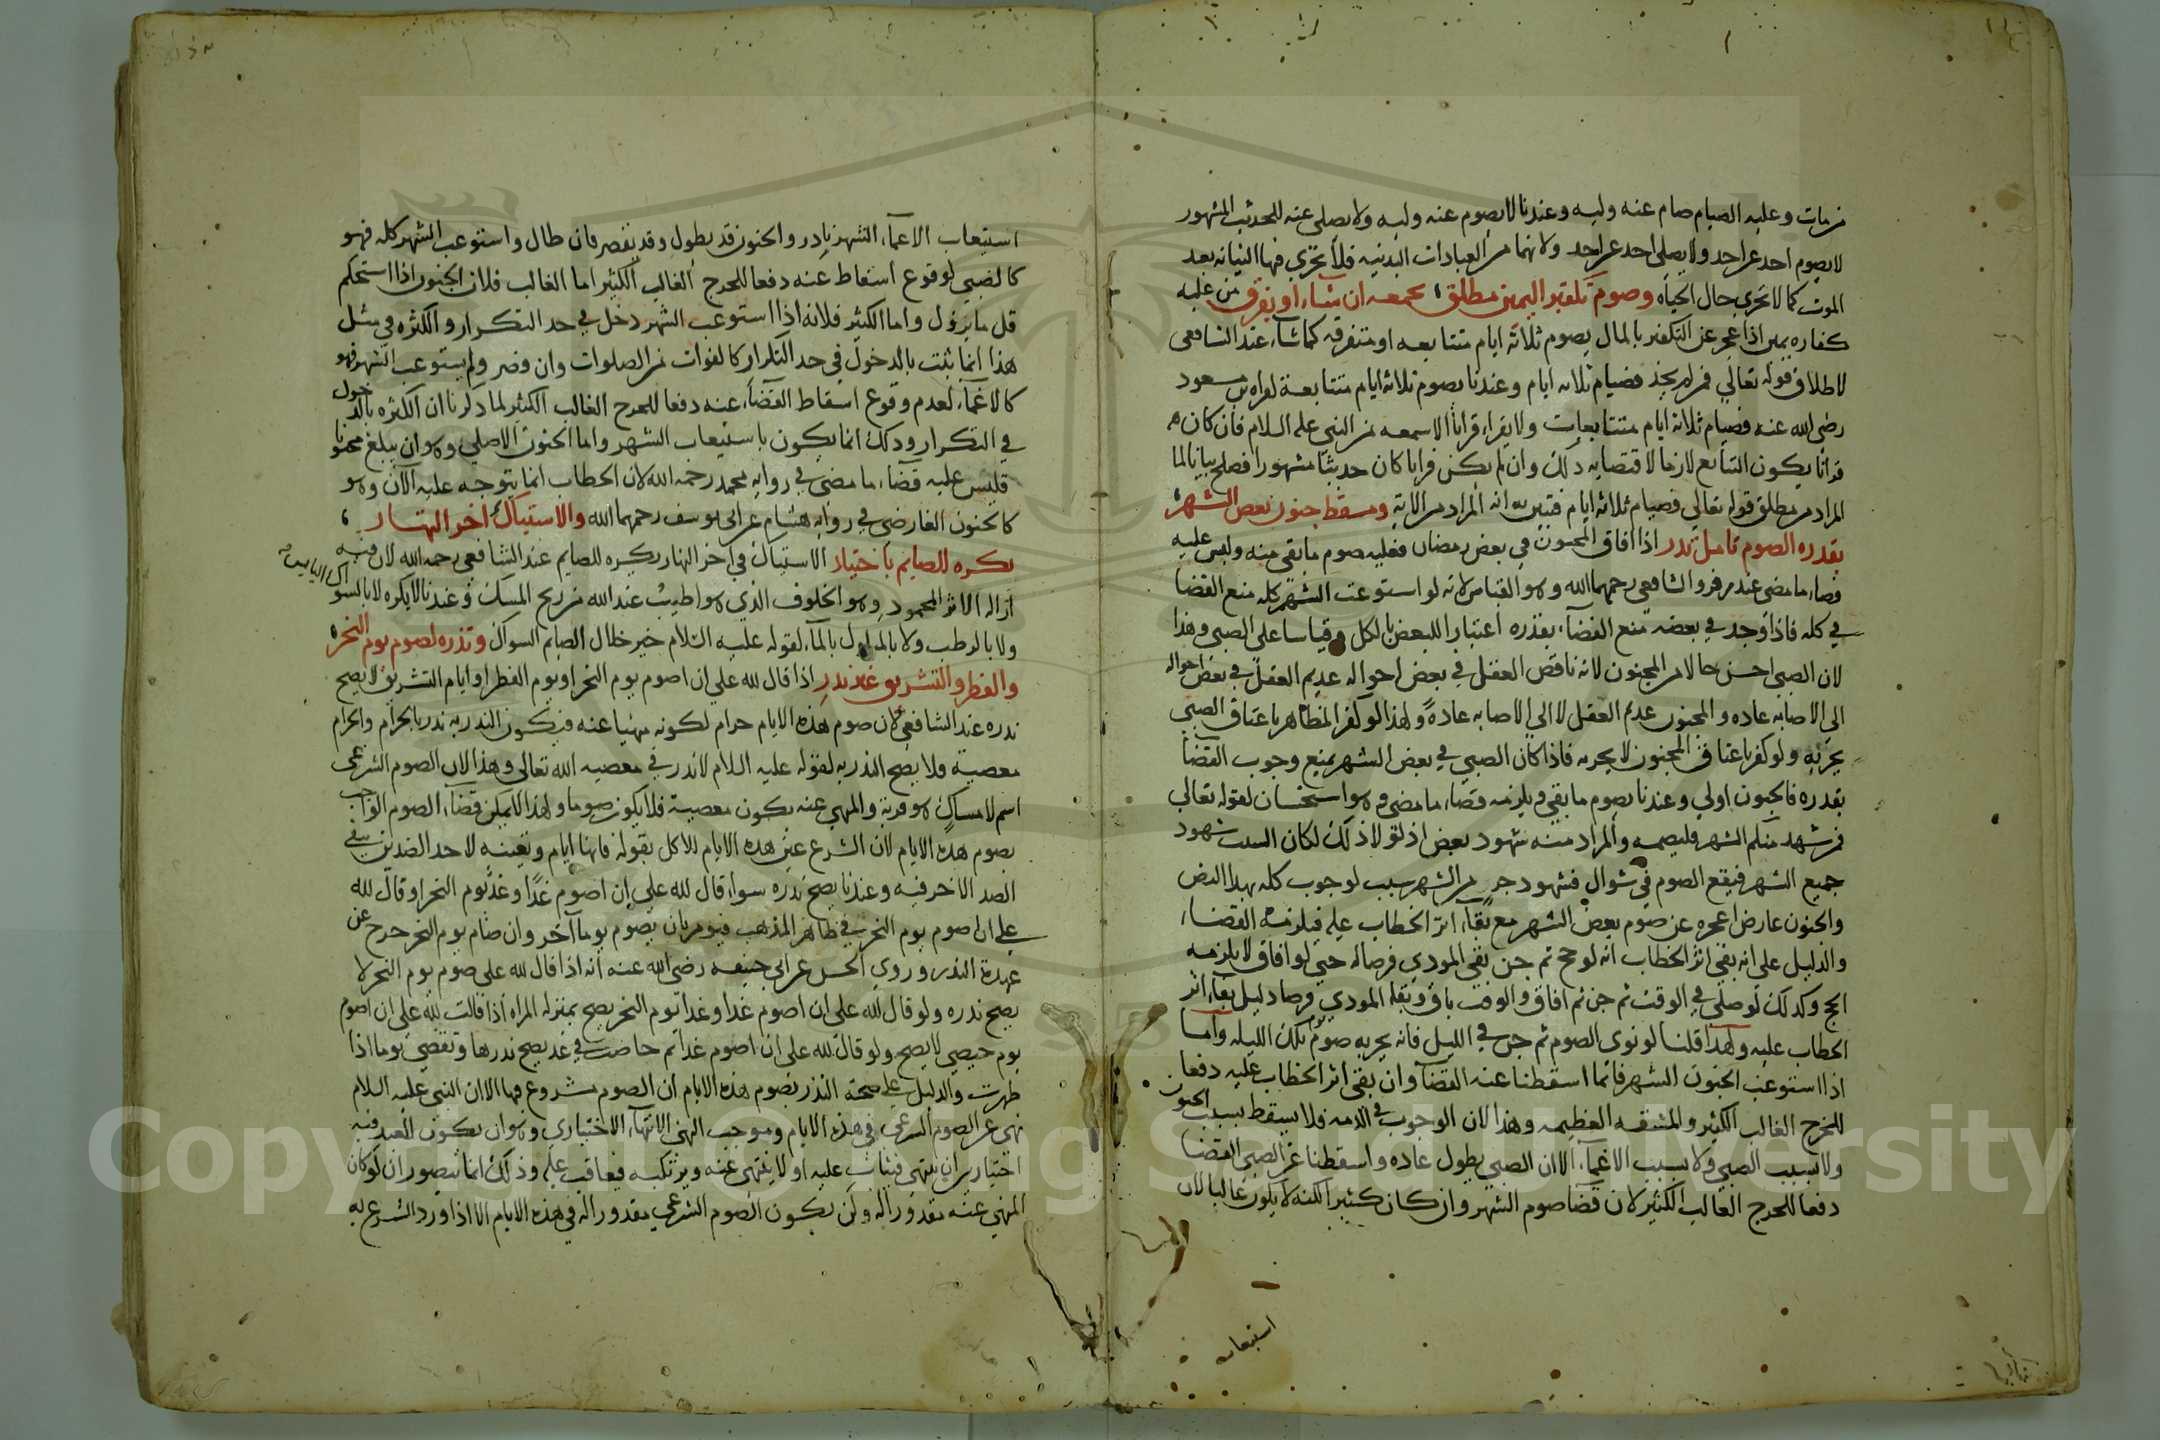 من مات وعليه الصيام صام عنه وليه وعندنا لا يصوم عنه وليه ولا يصلي عنه للحديث المشهور
لا يصوم احد عن احد ولا يصلي احد عن احد ولانهما من العبادات البدنيه فلا تجزي فيها النيابه بعد
الموت كما لا تجري حال الحياه وصوم تكفير اليمين مطلق يجمعه ان شاء او يفرق من عليه
كفاره يمين اذا عجز عن التكفير بالمال يصوم ثلاثة ايام متتابعه او متفرقه كما شاء عند الشافعي
لاطلاق قوله تعالي فمن لم يجد فصيام ثلاثه ايام وعندنا يصوم ثلاثة ايام متتابعة لقراه بن مسعود
رضي الله عنه فصيام ثلاثة ايام متتابعات ولا يقراء قرانا الا سمعه من النبي عليه السلام فان كان
قرانا يكون التتابع لازما لاقتضايه ذلك وان لم يكن قرانا كان حديثا مشهورا فصلح بيانا لما
المراد من مطلق قوله تعالي فصيام ثلاثة ايام فتبين به انه المراد من الاية ومسقط جنون بعض الشهر
بقدره الصوم تامل تدر اذا افاق المجنون في بعض رمضان فعليه صوم ما بقي منه وليس عليه
قضاء ما مضي عند زفر والشافعي رحمهما الله وهو القياس لانه لو استوعب الشهر كله منع القضا
في كله فاذا وجد في بعضه منع القضاء بقدره اعتبارا للبعض بالكل وقياسا علي الصبي وهذا
لان الصبي احسن حالا من المجنون لانه ناقص العقل في بعض احواله عديم العقل في بعض احواله
الي الاصابه عاده والمجنون عديم العقل لا الي الاصابه عادة ولهذا لو كفر المظاهر باعتاق الصبي
يجزيه ولو كفر باعتاق المجنون لا يجزيه فاذا كان الصبي في بعض الشهر يمنع وجوب القضا
بقدره فالجنون اولي وعندنا يصوم ما بقي ويلزمه قضاء ما مضي وهو استحسان لقوله تعالي
فمن شهد منكم الشهر فليصمه والمراد منه شهود بعض اذ لو لا ذلك لكان السبب شهود
جميع الشهر فيقع الصوم في شوال فشهود جزء من الشهر سبب لوجوب كله بهذا النص
والجنون عارض اعجزه عن صوم بعض الشهر مع بقاء اثر الخطاب عليه فيلزمه القضاء
والدليل علي انه بقي اثر الخطاب انه لو حج ثم جن بقي المودي فرضا له حتي لو افاق لا يلزمه
الحج وكذلك لو صلي في الوقت ثم جن ثم افاق والوقت باق وبقاء المودي فرضا دليل بقاء اثر
الخطاب عليه ولهذا قلنا لو نوي الصوم ثم جن في الليل فانه يجزيه صوم تلك الليله واما
اذا استوعب الجنون الشهر فانما اسقطنا عنه القضاء وان بقي اثر الخطاب عليه دفعا
للحرج الغالب الكثير والمشقه العظيمه وهذا لان الوجوب في الذمه فلا يسقط بسبب الجنون
ولا بسبب الصبي ولا بسبب الاغماء الا ان الصبي يطول عاده واسقطنا عن الصبي القضا
دفعا للحرج الغالب الكثير لان قضا صوم الشهر وان كان كثيرا لكنه لا يكون غالبا لان
استيعاب
استيعاب الاغماء الشهر نادر والجنون قد يطول وقد يقصر فان طال واستوعب الشهر كله فهو
كالصبي لوقوع اسقاط عنه دفعا للحرج الغالب الكثير اما الغالب فلان الجنون اذا استحكم
قل ما يزول واما الكثير فلانه اذا استوعب الشهر دخل في حد التكرار والكثره في مثل
هذا انما يثبت بالدخول في حد التكرار كالفوات من الصلوات وان قصر ولم يستوعب الشهر فهو
كالاغماء لعدم وقوع اسقاط القضاء عنه دفعا للحرج الغالب الكثير لما ذكرنا ان الكثره بالدخول
في التكرار وذلك انما يكون باستيعاب الشهر واما الجنون الاصلي وهو ان يبلغ مجنونا
فليس عليه قضاء ما مضي في روايه محمد رحمه الله لان الخطاب انما يتوجه عليه الان وهو
كالجنون العارضي في روايه هشام عن ابي يوسف رحمهما الله والاستياك اخر النهار
يكره للصايم باختيار الاستياك في اخر النهار يكره للصايم عند الشافعي رحمه الله لان فيه
ازاله الاثر المحمود وهو الخلوف الذي هو اطيب عند الله من ريح المسك وعندنا لا يكره لا بالسواك اليابس
ولا بالرطب ولا بالمبلول بالماء لقوله عليه السلام خير خلال الصايم السواك ونذره لصوم يوم النحر
والفطر والتشريق غير نذر اذا قال لله علي ان اصوم يوم النحر او يوم الفطر او ايام التشريق لا يصح
نذره عند الشافعي لان صوم هذه الايام حرام لكونه منهيا عنه فيكون النذر به نذرا بالحرام والحرام
معصية فلا يصح النذر به لقوله عليه السلام لا نذر في معصيه الله تعالي وهذا لان الصوم الشرعي
اسم لامساك هو قربة والمنهي عنه يكون معصية فلا يكون صوما ولهذا لا يمكن قضاء الصوم الواجب
بصوم هذه الايام لان الشرع عين هذه الايام للاكل بقوله فانها ايام وتعينه لاحد الضدين ينفي
الضد الاخر فيه وعندنا يصح نذره سواء قال لله علي ان اصوم غدا وغدا يوم النحر او قال لله
علي ان اصوم يوم النحر في ظاهر المذهب فيومر بان يصوم يوما آخر وان صام يوم النحر خرج عن
عهدة النذر وروي الحسن عن ابي حنيفه رضي الله عنه انه اذا قال لله علي صوم يوم النحر لا
يصح نذره ولو قال لله علي ان اصوم غدا وغدا يوم النحر يصح بمنزله المراه اذا قالت لله علي ان اصوم
يوم حيضي لا يصح ولو قالت لله علي ان اصوم غدا ثم حاضت في غد يصح نذرها وتقضي يوما اذا
طهرت والدليل علي صحة النذر بصوم هذه الايام ان الصوم مشروع فيها لان النبي عليه السلام
نهي عن الصوم الشرعي في هذه الايام وموجب النهي الانتهاء الاختياري وهو ان يكون العبد فيه
اختيار بين ان ينتهي فيثاب عليه او لا ينتهي عنه ويرتكبه فيعاقب عليه وذلك انما يتصور ان لو كان
المنهي عنه مقدورا له ولن يكون الصوم الشرعي مقدورا له في هذه الايام الا اذا ورد الشرع به
Copyright © King Saud University